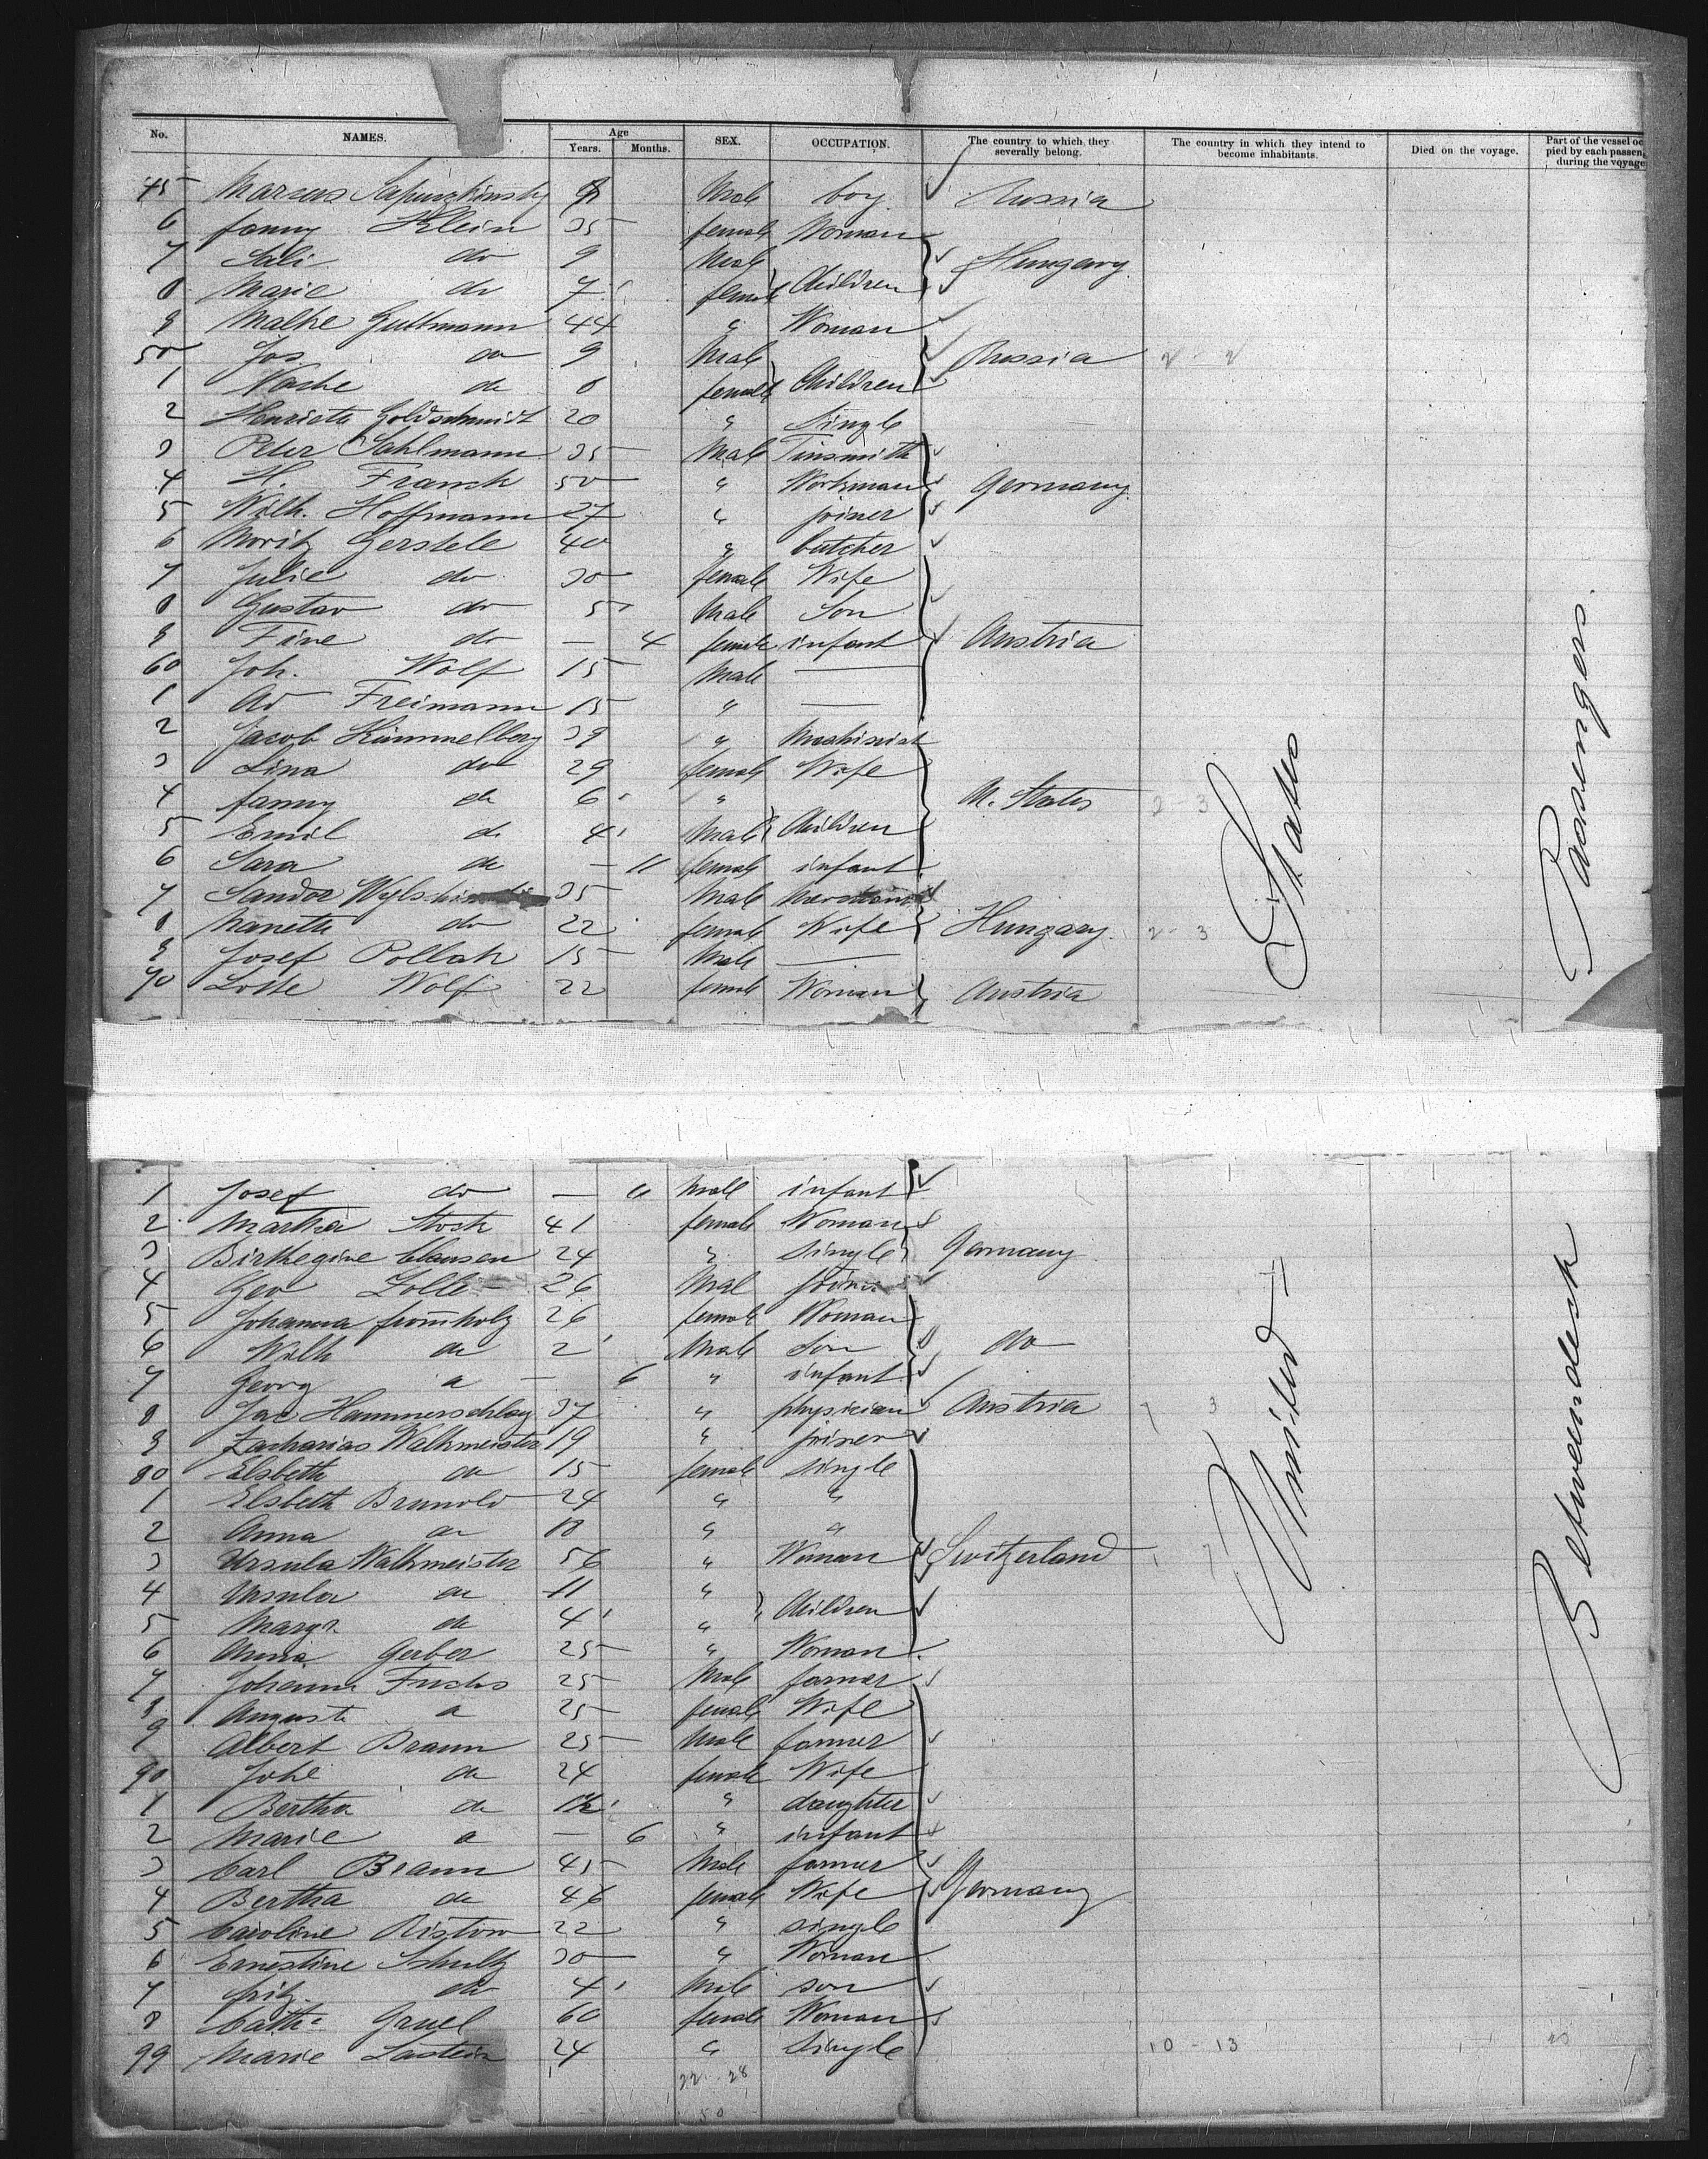 No. NAMES. Age Years. Months. SEX. OCCUPATION. The country to which they severally belong. The country in which they intend to become inhabitants. Died on the voyage. Part of the vessel oc pied by each passen during the voyage
45 Marcus Male boy Russia
6 fanny Klein 35 female Woman
7 Sali do 9 Male
8 Marie do 7 female Children Hungary
9 Malke Guttmann 44 " Woman
50 Jos do 9 Male Russia 2 - 2
1 do 8 female Children
2 Henriette Goldschmidt 20 " Single
3 Peter Sahlmann 35 Male Tinsmith
4 H. Franck 50 " Workman Germany
5 Wilh. Hoffmann 27 " joiner
6 Moritz Gerstele 40 " butcher
7 Julie do 30 female Wife
8 Gustav do 5 Male Son
9 Fine do — 4 female infant Austria
60 Joh. Wolf 15 Male —
1 Ad Freimann 15 " —
2 Jacob Kümmelberg 39 " Machinist
3 Lina do 29 female Wife
4 fanny do 6 " U. States 2 - 3
5 Emil do 4 Male Children
6 Sara do — 11 female infant
7 Sandor 35 Male
8 Nanette do 22 female Wife Hungary 2 - 3
9 Josef Pollak 15 Male —
70 Lotte Wolf 22 female Woman Austria
States
Passengers.
1 Josef do — Male infant
2 Martha Stock 41 female Woman
3 Birthegine Clausen 24 " Single Germany
4 Geo Lolle 26 Mal joiner
5 Johanna fromholz 26 female Woman
6 Wilh do 2 Male Son do
7 Georg do — 6 " infant
8 Jac Hammerschlag 37 " physician Austria
9 Zacharias Walkmeister 19 " joiner
80 Elsbeth do 15 female single
1 Elsbeth Brunold 24 " "
2 Anna do 18 " "
3 Ursula Walkmeister 56 " Woman Switzerland
4 Ursula do 11 "
5 Margr. do 4 " Children
6 Anna Gerber 25 " Woman
7 Johann Fuchs 25 Male farmer
8 Auguste do 25 female Wife
9 Albert Braun 25 Male farmer
90 Johe do 24 female Wife
1 Bertha do " daughter
2 Marie do — 6 " infant
3 Carl Braun 45 Male farmer
4 Bertha do 46 female Wife Germany
5 Caroline Ristow 22 " single
6 Ernestine Schultz 30 " Woman
7 fritz do 4 Male son
8 Cathe Gruel 60 female Woman
99 Marie 24 " Single 10 - 13
22 - 28
50
United
Betweendeck